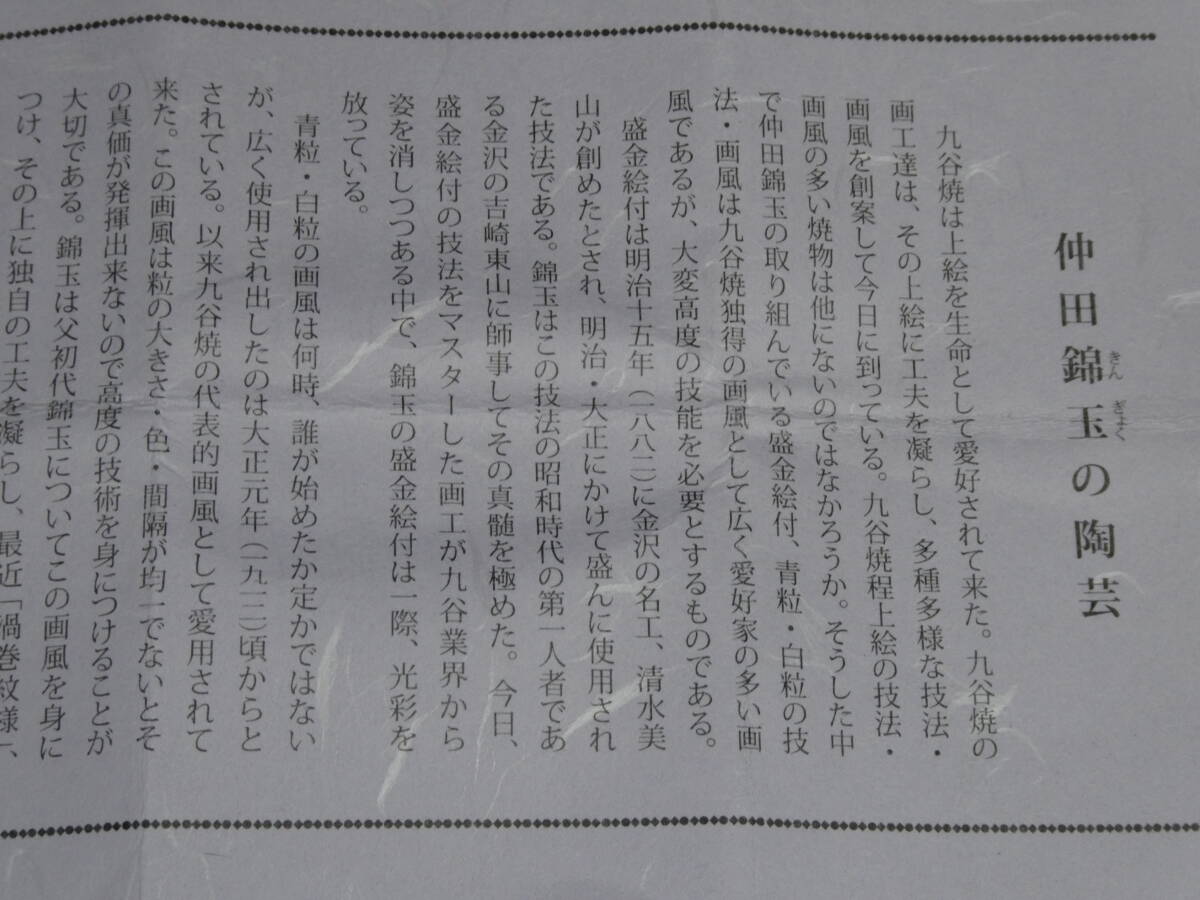 仲田錦玉の陶芸
きんぎょく
九谷焼は上絵を生命として愛好されて来た。九谷焼の
画工達は、その上絵に工夫を凝らし、多種多様な技法・
画風を創案して今日に到っている。九谷焼程上絵の技法・
画風の多い焼物は他にないのではなかろうか。そうした中
で仲田錦玉の取り組んでいる盛金絵付、青粒・白粒の技
法・画風は九谷焼独得の画風として広く愛好家の多い画
風であるが、大変高度の技能を必要とするものである。
盛金絵付は明治十五年（一八八二）に金沢の名工、清水美
山が創めたとされ、明治・大正にかけて盛んに使用され
た技法である。錦玉はこの技法の昭和時代の第一人者であ
る金沢の吉崎東山に師事してその真髄を極めた。今日、
盛金絵付の技法をマスターした画工が九谷業界から
姿を消しつつある中で、錦玉の盛金絵付は一際、光彩を
放っている。
青粒・白粒の画風は何時、誰が始めたか定かではない
が、広く使用され出したのは大正元年（一九一二）頃からと
されている。以来九谷焼の代表的画風として愛用されて
来た。この画風は粒の大きさ・色・間隔が均一でないとそ
の真価が発揮出来ないので高度の技術を身につけることが
大切である。錦玉は父初代錦玉についてこの画風を身に
つけ、その上に独自の工夫を凝らし、最近「渦巻紋様」、